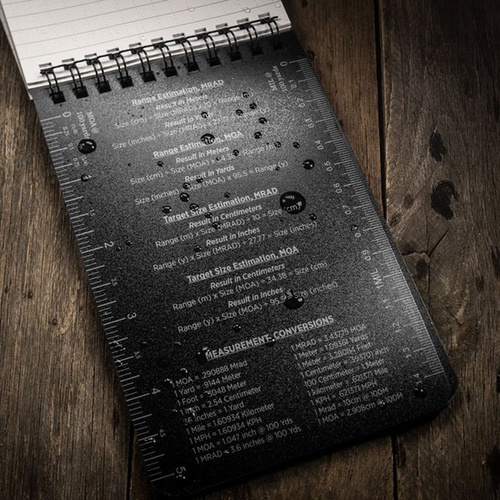 Range Estimation, MRAD
Result in Meters
Size (cm)
Size (inches)
Range Estimation, MOA
Result in Meters
Size (cm)
Result in Yards
Size (inches) (MOA) x 95.5 = Range (y)
Target Size Estimation, MRAD
Result in Centimeters
Range (m) x Size (MRAD) ÷ 10 = Size (cm)
Result in Inches
Range (y) x Size (MRAD) ÷ 27.77 = Size (inches)
Target Size Estimation, MOA
Result in Centimeters
Range (m) x Size (MOA) ÷ 34.38 = Size (cm)
Result in Inches
Range (y) x Size (MOA) ÷ 95.5 = Size (inches)
MEASUREMENT CONVERSIONS
1 MOA = .290888 Mrad
1 Yard = .9144 Meter
1 Foot = .3048 Meter
1 Inch = 2.54 Centimeter
36 Inches = 1 Yard
1 Mile = 1.60934 Kilometer
1 MPH = 1.60934 KPH
1 MOA = 1.047 inch @ 100 Yds
1 MRAD = 3.6 inches @ 100 Yds
1 MRAD = 3.43775 MOA
1 Meter = 1.09361 Yards
1 Meter = 3.28084 Feet
1 Centimeter = .393701 inch
100 Centimeter = 1 Meter
1 Kilometer = .621371 Mile
1 KPH = .621371 MPH
1 Mrad = 10cm @ 100M
1 MOA = 2.908cm @ 100M